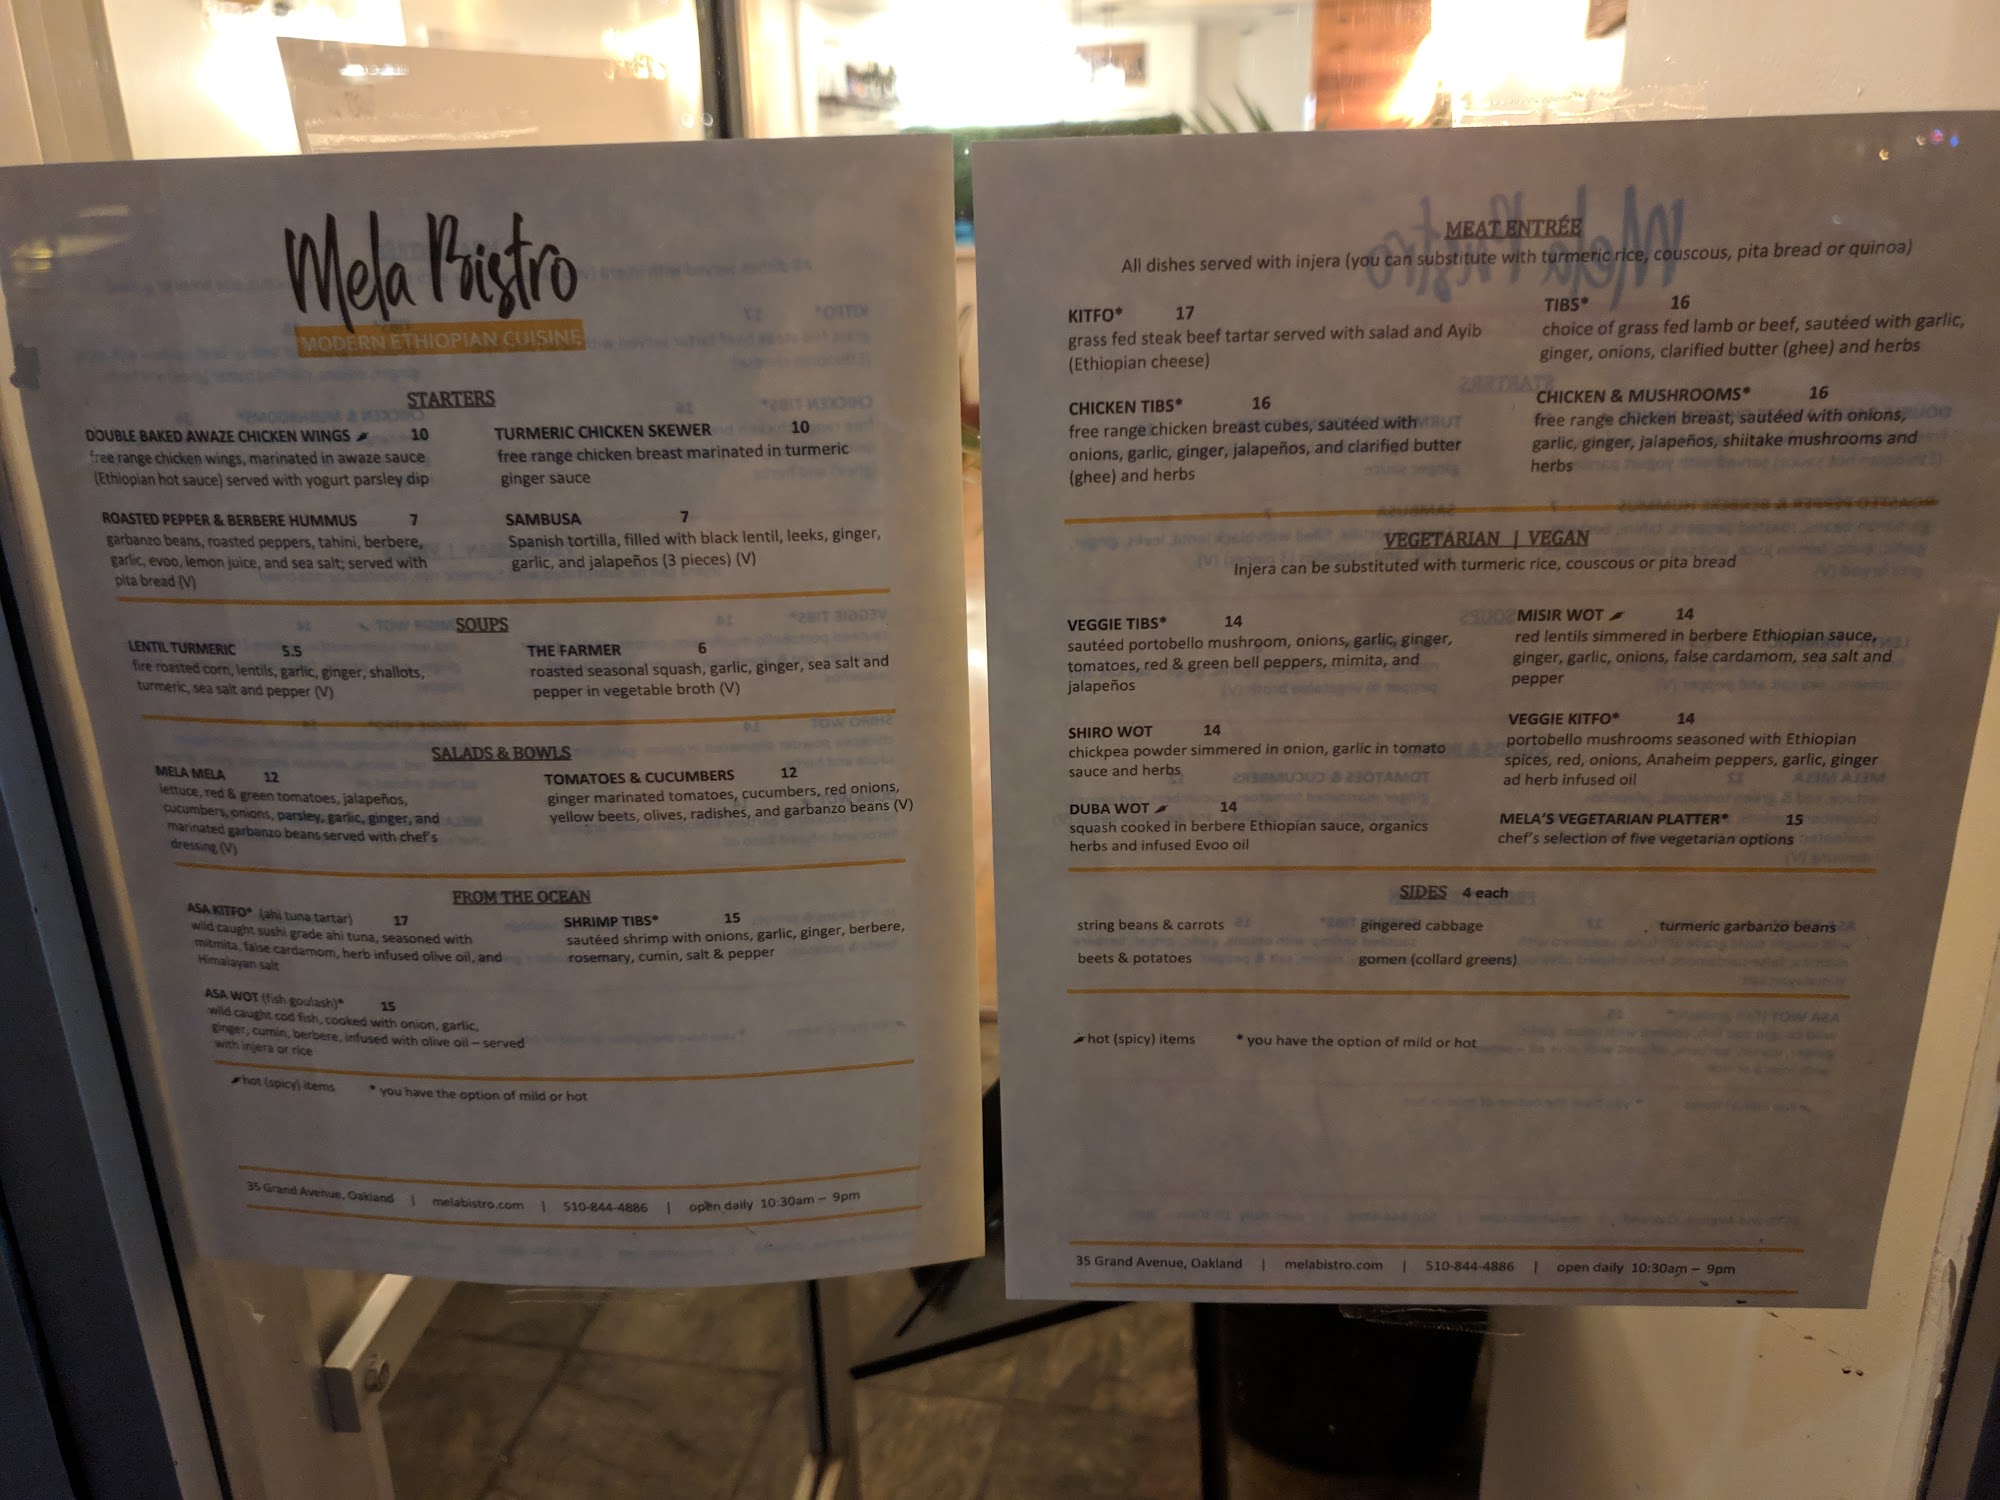 Mela Bistro
MODERN ETHIOPIAN CUISINE
STARTERS
DOUBLE BAKED AWAZE CHICKEN WINGS 10
free range chicken wings, marinated in awaze sauce
(Ethiopian hot sauce) served with yogurt parsley dip
TURMERIC CHICKEN SKEWER 10
free range chicken breast marinated in turmeric
ginger sauce
ROASTED PEPPER & BERBERE HUMMUS 7
garbanzo beans, roasted peppers, tahini, berbere,
garlic, evoo, lemon juice, and sea salt; served with
pita bread (V)
SAMBUSA 7
Spanish tortilla, filled with black lentil, leeks, ginger,
garlic, and jalapeños (3 pieces) (V)
SOUPS
LENTIL TURMERIC 5.5
fire roasted corn, lentils, garlic, ginger, shallots,
turmeric, sea salt and pepper (V)
THE FARMER 6
roasted seasonal squash, garlic, ginger, sea salt and
pepper in vegetable broth (V)
SALADS & BOWLS
MELA MELA 12
lettuce, red & green tomatoes, jalapeños,
cucumbers, onions, parsley, garlic, ginger, and
marinated garbanzo beans served with chef's
dressing (V)
TOMATOES & CUCUMBERS 12
ginger marinated tomatoes, cucumbers, red onions,
yellow beets, olives, radishes, and garbanzo beans (V)
FROM THE OCEAN
ASA KITFO* (ahi tuna tartar) 17
wild caught sushi grade ahi tuna, seasoned with
mitmita, false cardamom, herb infused olive oil, and
Himalayan salt
SHRIMP TIBS* 15
sautéed shrimp with onions, garlic, ginger, berbere,
rosemary, cumin, salt & pepper
ASA WOT (fish goulash)* 15
wild caught cod fish, cooked with onion, garlic,
ginger, cumin, berbere, infused with olive oil – served
with injera or rice
hot (spicy) items * you have the option of mild or hot
35 Grand Avenue, Oakland | melabistro.com | 510-844-4886 | open daily 10:30am – 9pm
MEAT ENTRÉE
All dishes served with injera (you can substitute with turmeric rice, couscous, pita bread or quinoa)
KITFO* 17
grass fed steak beef tartar served with salad and Ayib
(Ethiopian cheese)
TIBS* 16
choice of grass fed lamb or beef, sautéed with garlic,
ginger, onions, clarified butter (ghee) and herbs
CHICKEN TIBS* 16
free range chicken breast cubes, sautéed with
onions, garlic, ginger, jalapeños, and clarified butter
(ghee) and herbs
CHICKEN & MUSHROOMS* 16
free range chicken breast, sautéed with onions,
garlic, ginger, jalapeños, shiitake mushrooms and
herbs
VEGETARIAN | VEGAN
Injera can be substituted with turmeric rice, couscous or pita bread
VEGGIE TIBS* 14
sautéed portobello mushroom, onions, garlic, ginger,
tomatoes, red & green bell peppers, mimita, and
jalapeños
MISIR WOT 14
red lentils simmered in berbere Ethiopian sauce,
ginger, garlic, onions, false cardamom, sea salt and
pepper
SHIRO WOT 14
chickpea powder simmered in onion, garlic in tomato
sauce and herbs
VEGGIE KITFO* 14
portobello mushrooms seasoned with Ethiopian
spices, red, onions, Anaheim peppers, garlic, ginger
ad herb infused oil
DUBA WOT 14
squash cooked in berbere Ethiopian sauce, organics
herbs and infused Evoo oil
MELA'S VEGETARIAN PLATTER* 15
chef's selection of five vegetarian options
SIDES 4 each
string beans & carrots gingered cabbage turmeric garbanzo beans
beets & potatoes gomen (collard greens)
hot (spicy) items * you have the option of mild or hot
35 Grand Avenue, Oakland | melabistro.com | 510-844-4886 | open daily 10:30am – 9pm